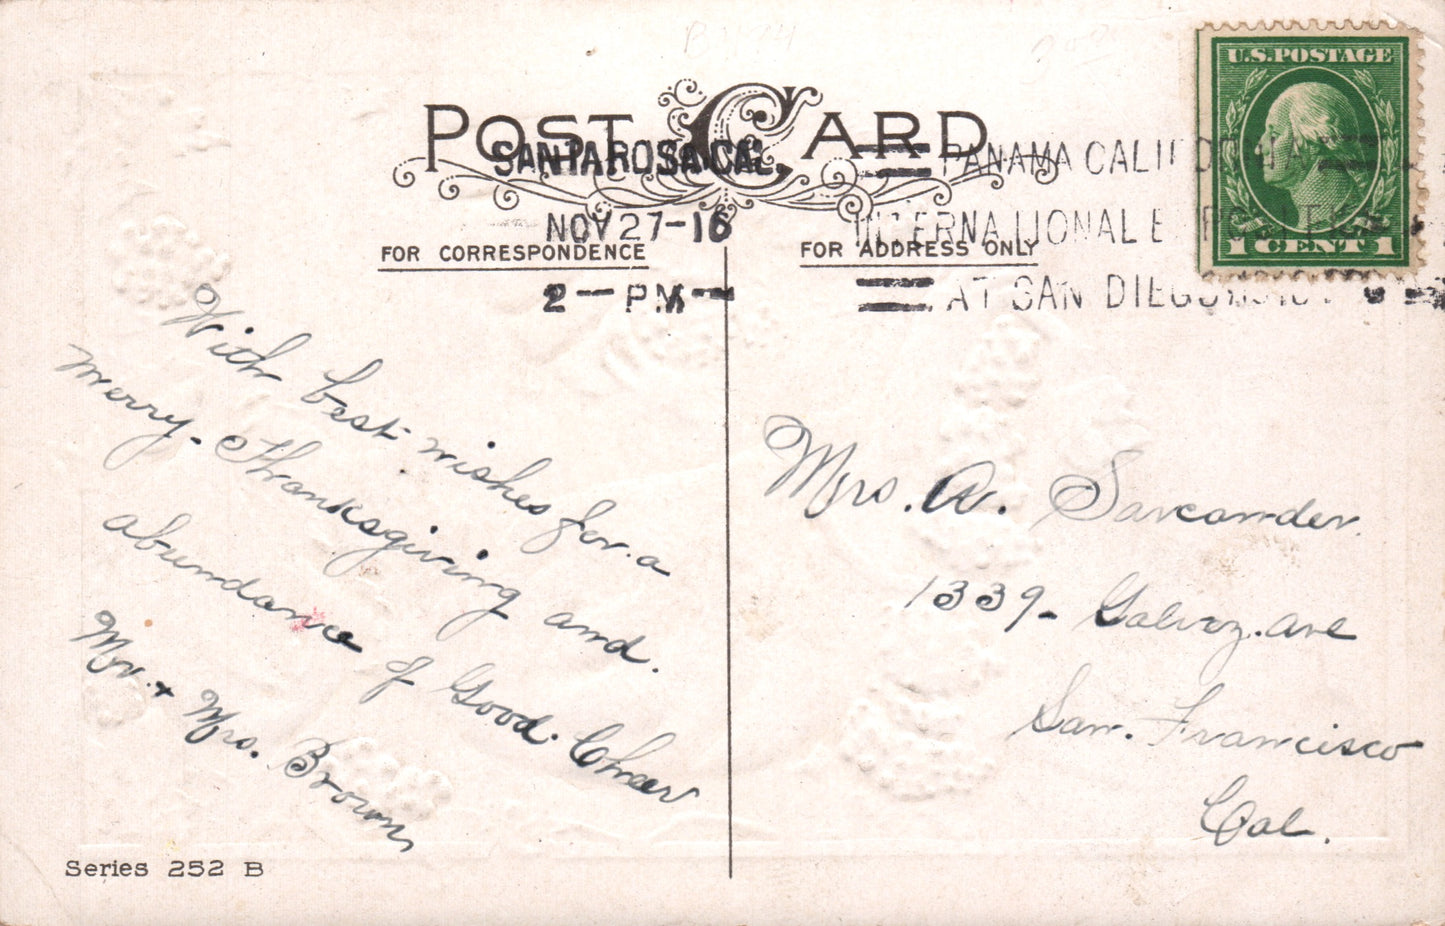 U.S. POSTAGE
1 CENT 1
POST CARD
SANTA ROSA CAL.
NOV 27-16
2 — PM —
PANAMA CALIFORNIA
INTERNATIONAL EXPOSITION
AT SAN DIEGO
FOR CORRESPONDENCE
FOR ADDRESS ONLY
With best wishes for a
merry- Thanksgiving and.
abundance of Good. Cheer
Mr. + Mrs. Brown
Mrs. A. Sarcander.
1339- Galvez. ave
San. Francisco
Cal.
Series 252 B